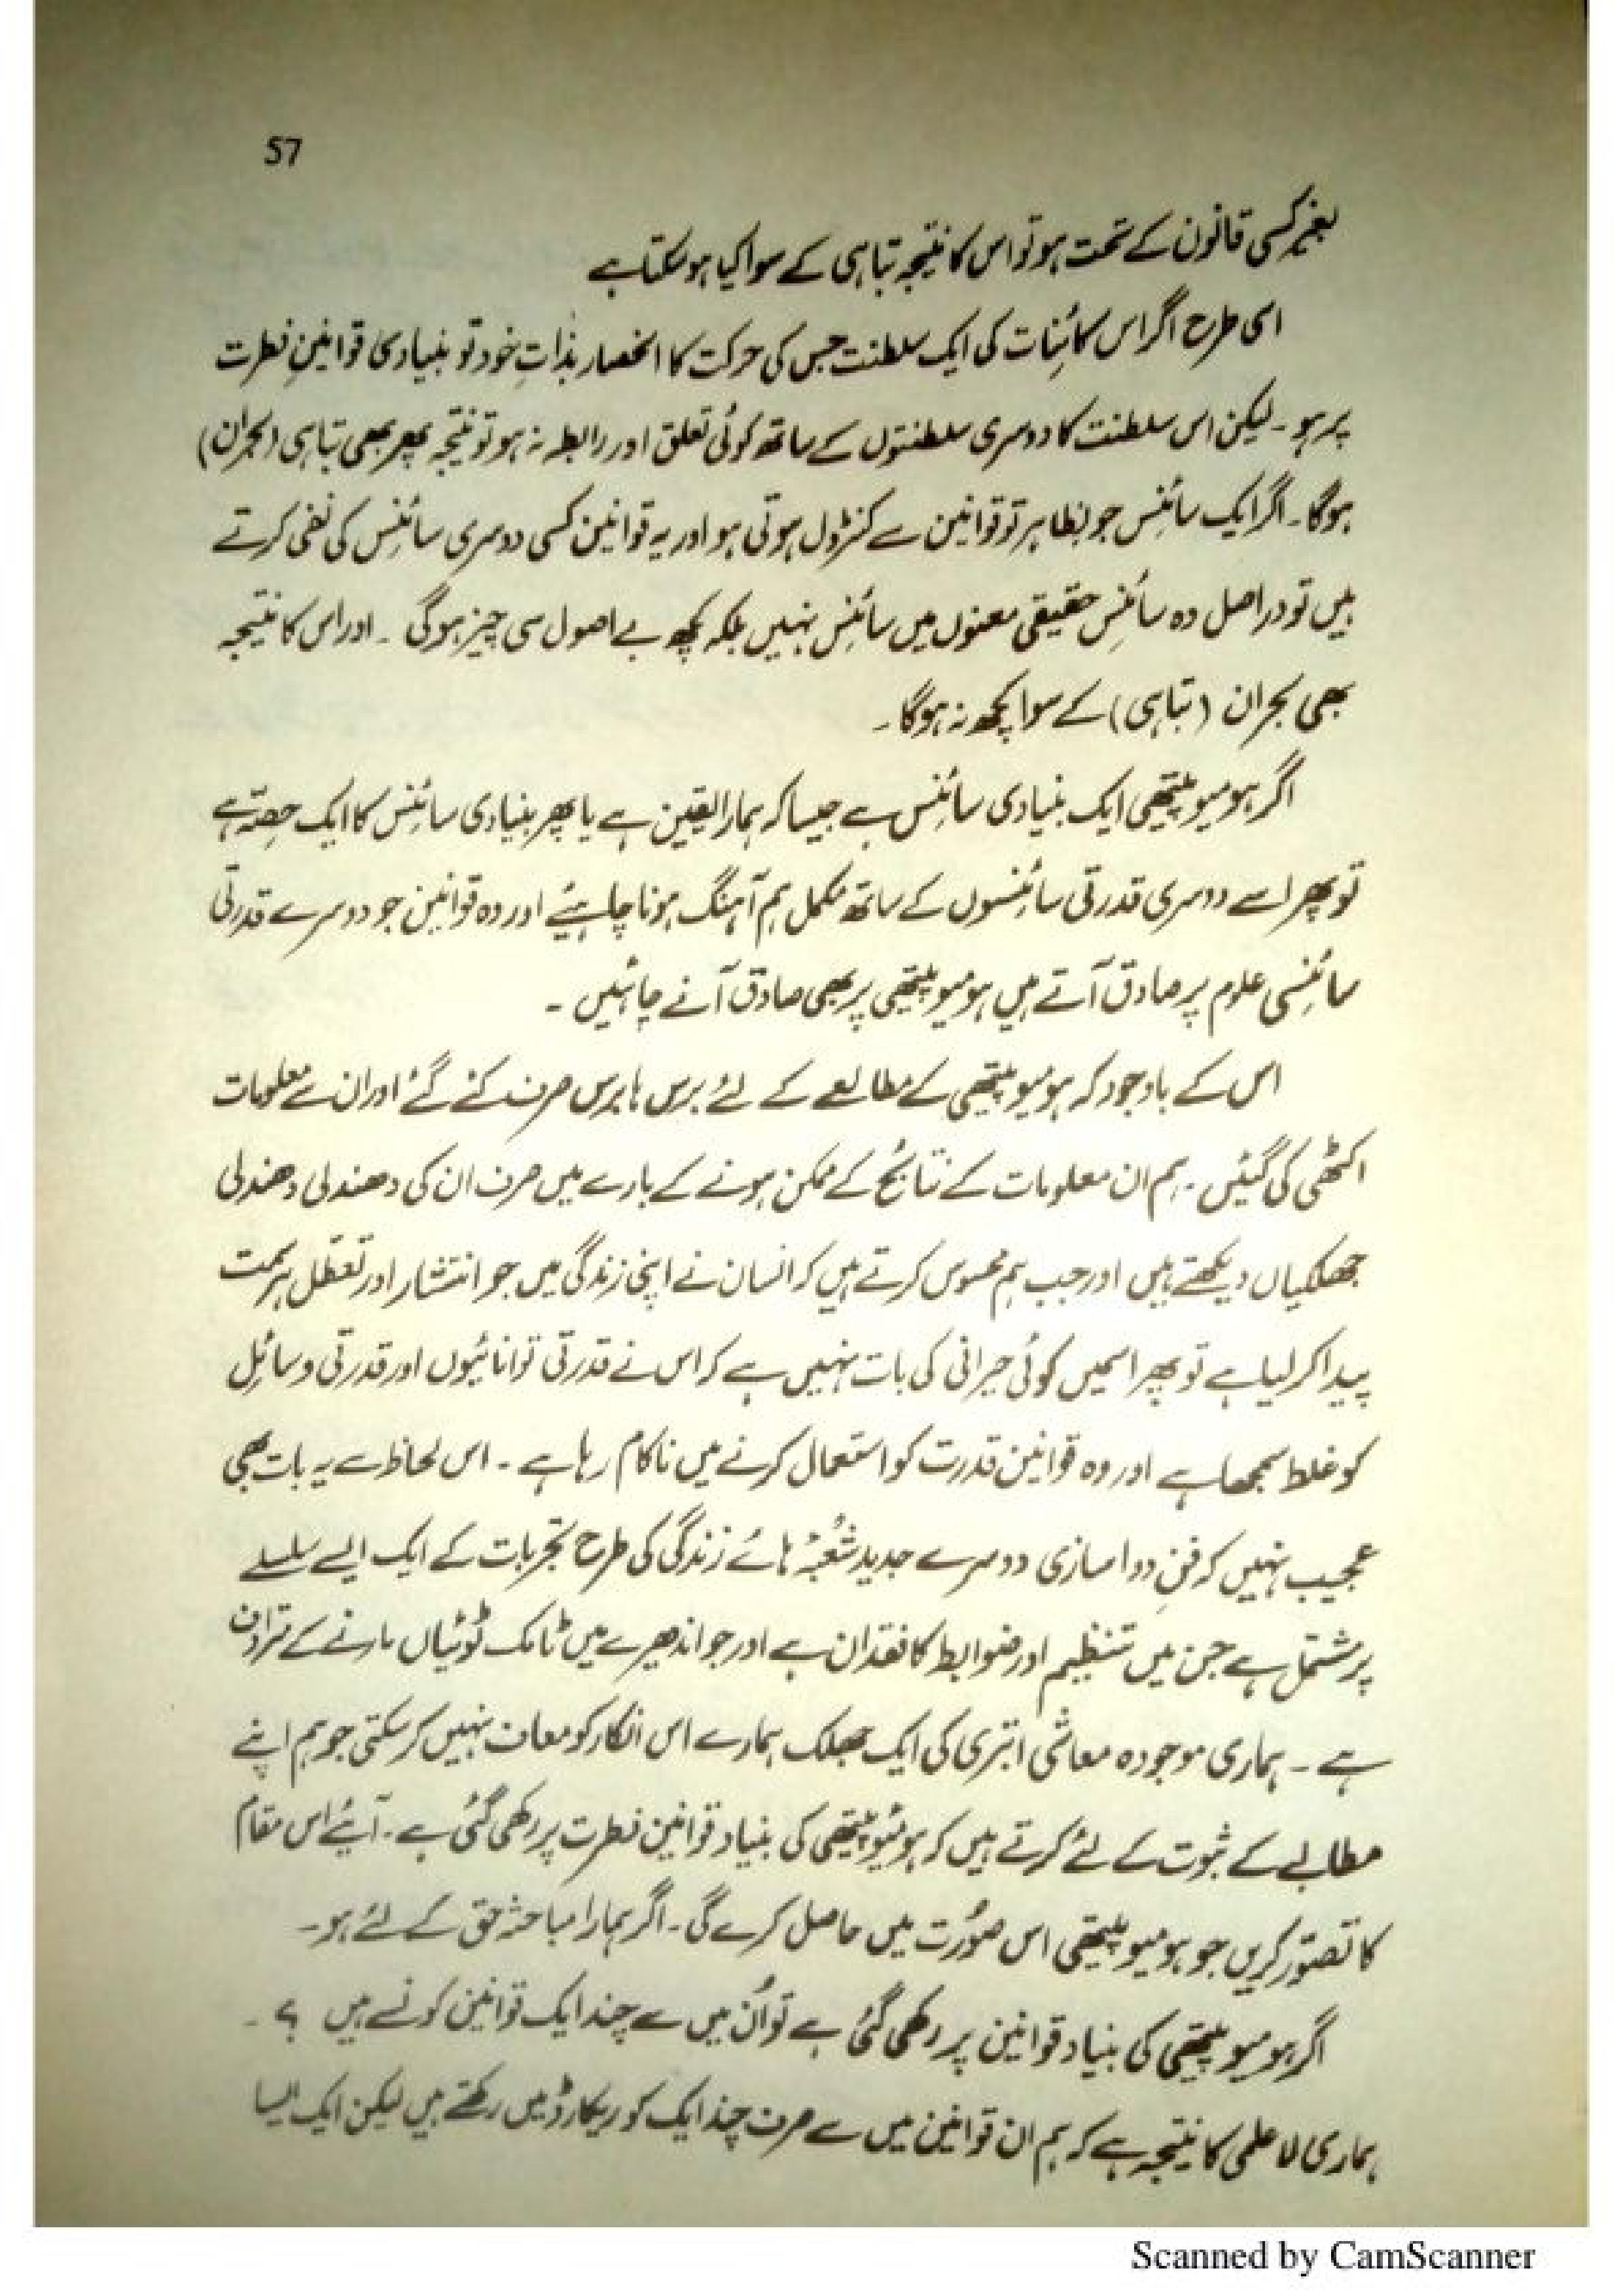 57
بغیر کسی قانون کے تحت ہو تو اس کا نتیجہ تباہی کے سوا کیا ہو سکتا ہے
اسی طرح اگر اس کائنات کی ایک سلطنت جس کی حرکت کا انحصار بذاتِ خود تو بنیادی قوانینِ فطرت
پر ہو ۔ لیکن اس سلطنت کا دوسری سلطنتوں کے ساتھ کوئی تعلق اور رابطہ نہ ہو تو نتیجہ پھر بھی تباہی (بحران)
ہوگا ۔ اگر ایک سائنس جو بظاہر تو قوانین سے کنٹرول ہوتی ہو اور یہ قوانین کسی دوسری سائنس کی نفی کرتے
ہیں تو دراصل وہ سائنس حقیقی معنوں میں سائنس نہیں بلکہ کچھ بے اصول سی چیز ہوگی ۔ اور اس کا نتیجہ
بھی بحران (تباہی) کے سوا کچھ نہ ہوگا ۔
اگر ہومیوپیتھی ایک بنیادی سائنس ہے جیسا کہ ہمارا یقین ہے یا پھر بنیادی سائنس کا ایک حصّہ ہے
تو پھر اسے دوسری قدرتی سائنسوں کے ساتھ مکمل ہم آہنگ ہونا چاہیئے اور وہ قوانین جو دوسرے قدرتی
سائنسی علوم پر صادق آتے ہیں ہومیوپیتھی پر بھی صادق آنے چاہئیں ۔
اس کے باوجود کہ ہومیوپیتھی کے مطالعے کے لئے برس ہا برس صرف کئے گئے اور ان سے معلومات
اکٹھی کی گئیں ۔ ہم ان معلومات کے نتائج کے ممکن ہونے کے بارے میں صرف ان کی دھندلی دھندلی
جھلکیاں دیکھتے ہیں اور جب ہم محسوس کرتے ہیں کہ انسان نے اپنی زندگی میں جو انتشار اور تعطل ہر سمت
پیدا کر لیا ہے تو پھر اسمیں کوئی حیرانی کی بات نہیں ہے کہ اس نے قدرتی توانائیوں اور قدرتی وسائل
کو غلط سمجھا ہے اور وہ قوانین قدرت کو استعمال کرنے میں ناکام رہا ہے ۔ اس لحاظ سے یہ بات بھی
عجیب نہیں کہ فنِ دوا سازی دوسرے جدید شعبۂ ہائے زندگی کی طرح تجربات کے ایک ایسے سلسلے
پر مشتمل ہے جن میں تنظیم اور ضوابط کا فقدان ہے اور جو اندھیرے میں ٹامک ٹوئیاں مارنے کے مترادف
ہے ۔ ہماری موجودہ معاشی ابتری کی ایک جھلک ہمارے اس انکار کو معاف نہیں کر سکتی جو ہم اپنے
مطالبے کے ثبوت کے لئے کرتے ہیں کہ ہومیوپیتھی کی بنیاد قوانین فطرت پر رکھی گئی ہے ۔ آیئے اس مقام
کا تصّور کریں جو ہومیوپیتھی اس صُورت میں حاصل کرے گی ۔ اگر ہمارا مباحثہ حق کے لئے ہو ۔
اگر ہومیوپیتھی کی بنیاد قوانین پر رکھی گئی ہے تو اُن میں سے چند ایک قوانین کونسے ہیں ؟ ۔
ہماری لاعلمی کا نتیجہ ہے کہ ہم ان قوانین میں سے صرف چند ایک کو ریکارڈ میں رکھتے ہیں لیکن ایک ایسا
Scanned by CamScanner